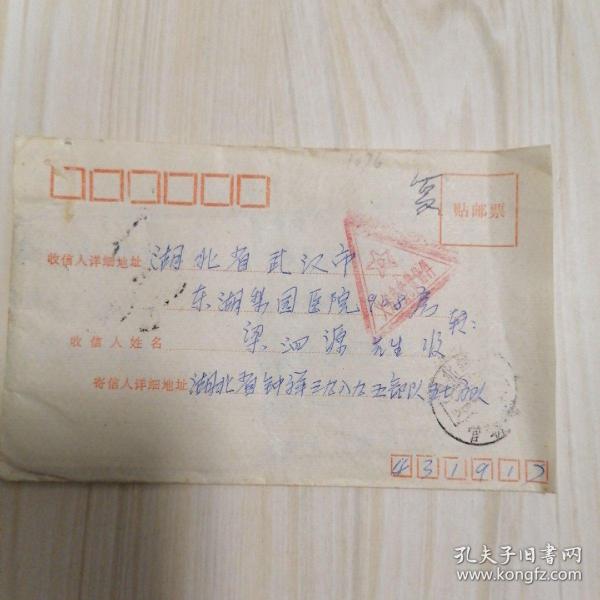 1076
复
贴邮票
收信人详细地址 湖北省武汉市
东湖梨园医院948房 转:
收信人姓名 梁泗源 先生收
寄信人详细地址 湖北省钟祥三九八九五部队
431917
孔夫子旧书网
www.kongfz.com